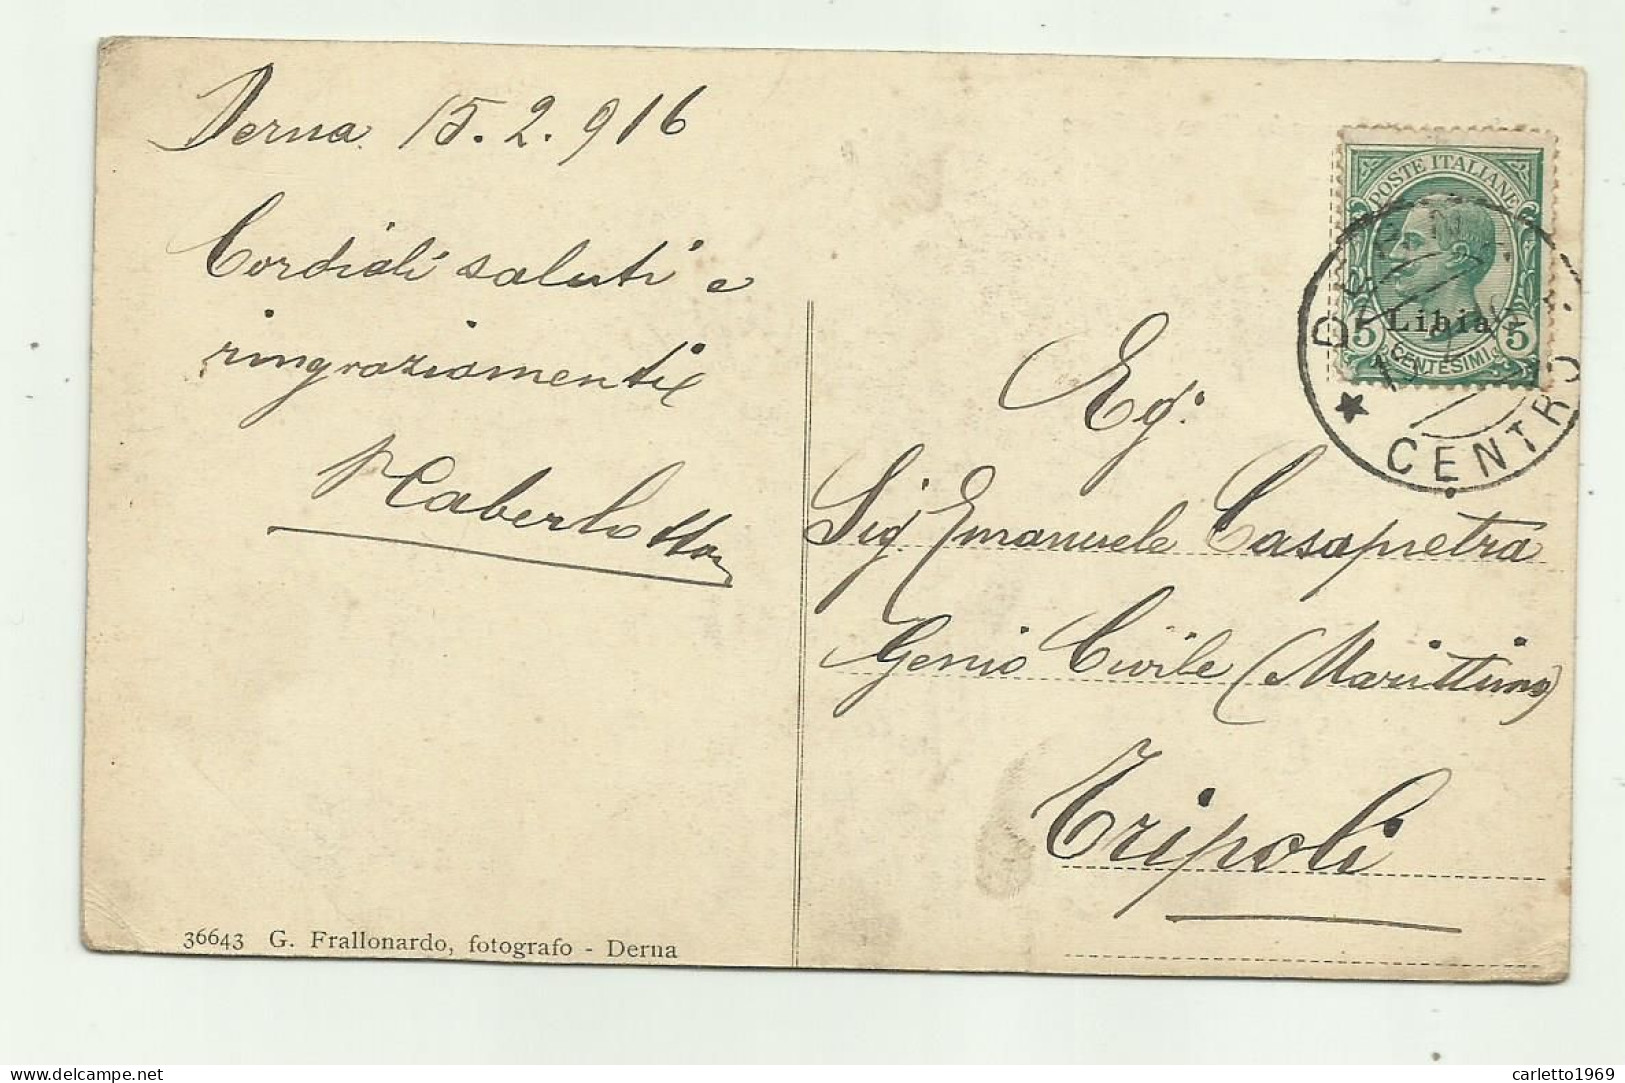 Derna 15.2.916
Cordiali saluti e
ringraziamenti
Eg.
Sig Emanuele Casapietra
Genio Civile (Marittimo)
Tripoli
POSTE ITALIANE
Libia
5 5
CENTESIMI
DERNA
CENTRO
36643 G. Frallonardo, fotografo - Derna
delcampe.net
carletto1969